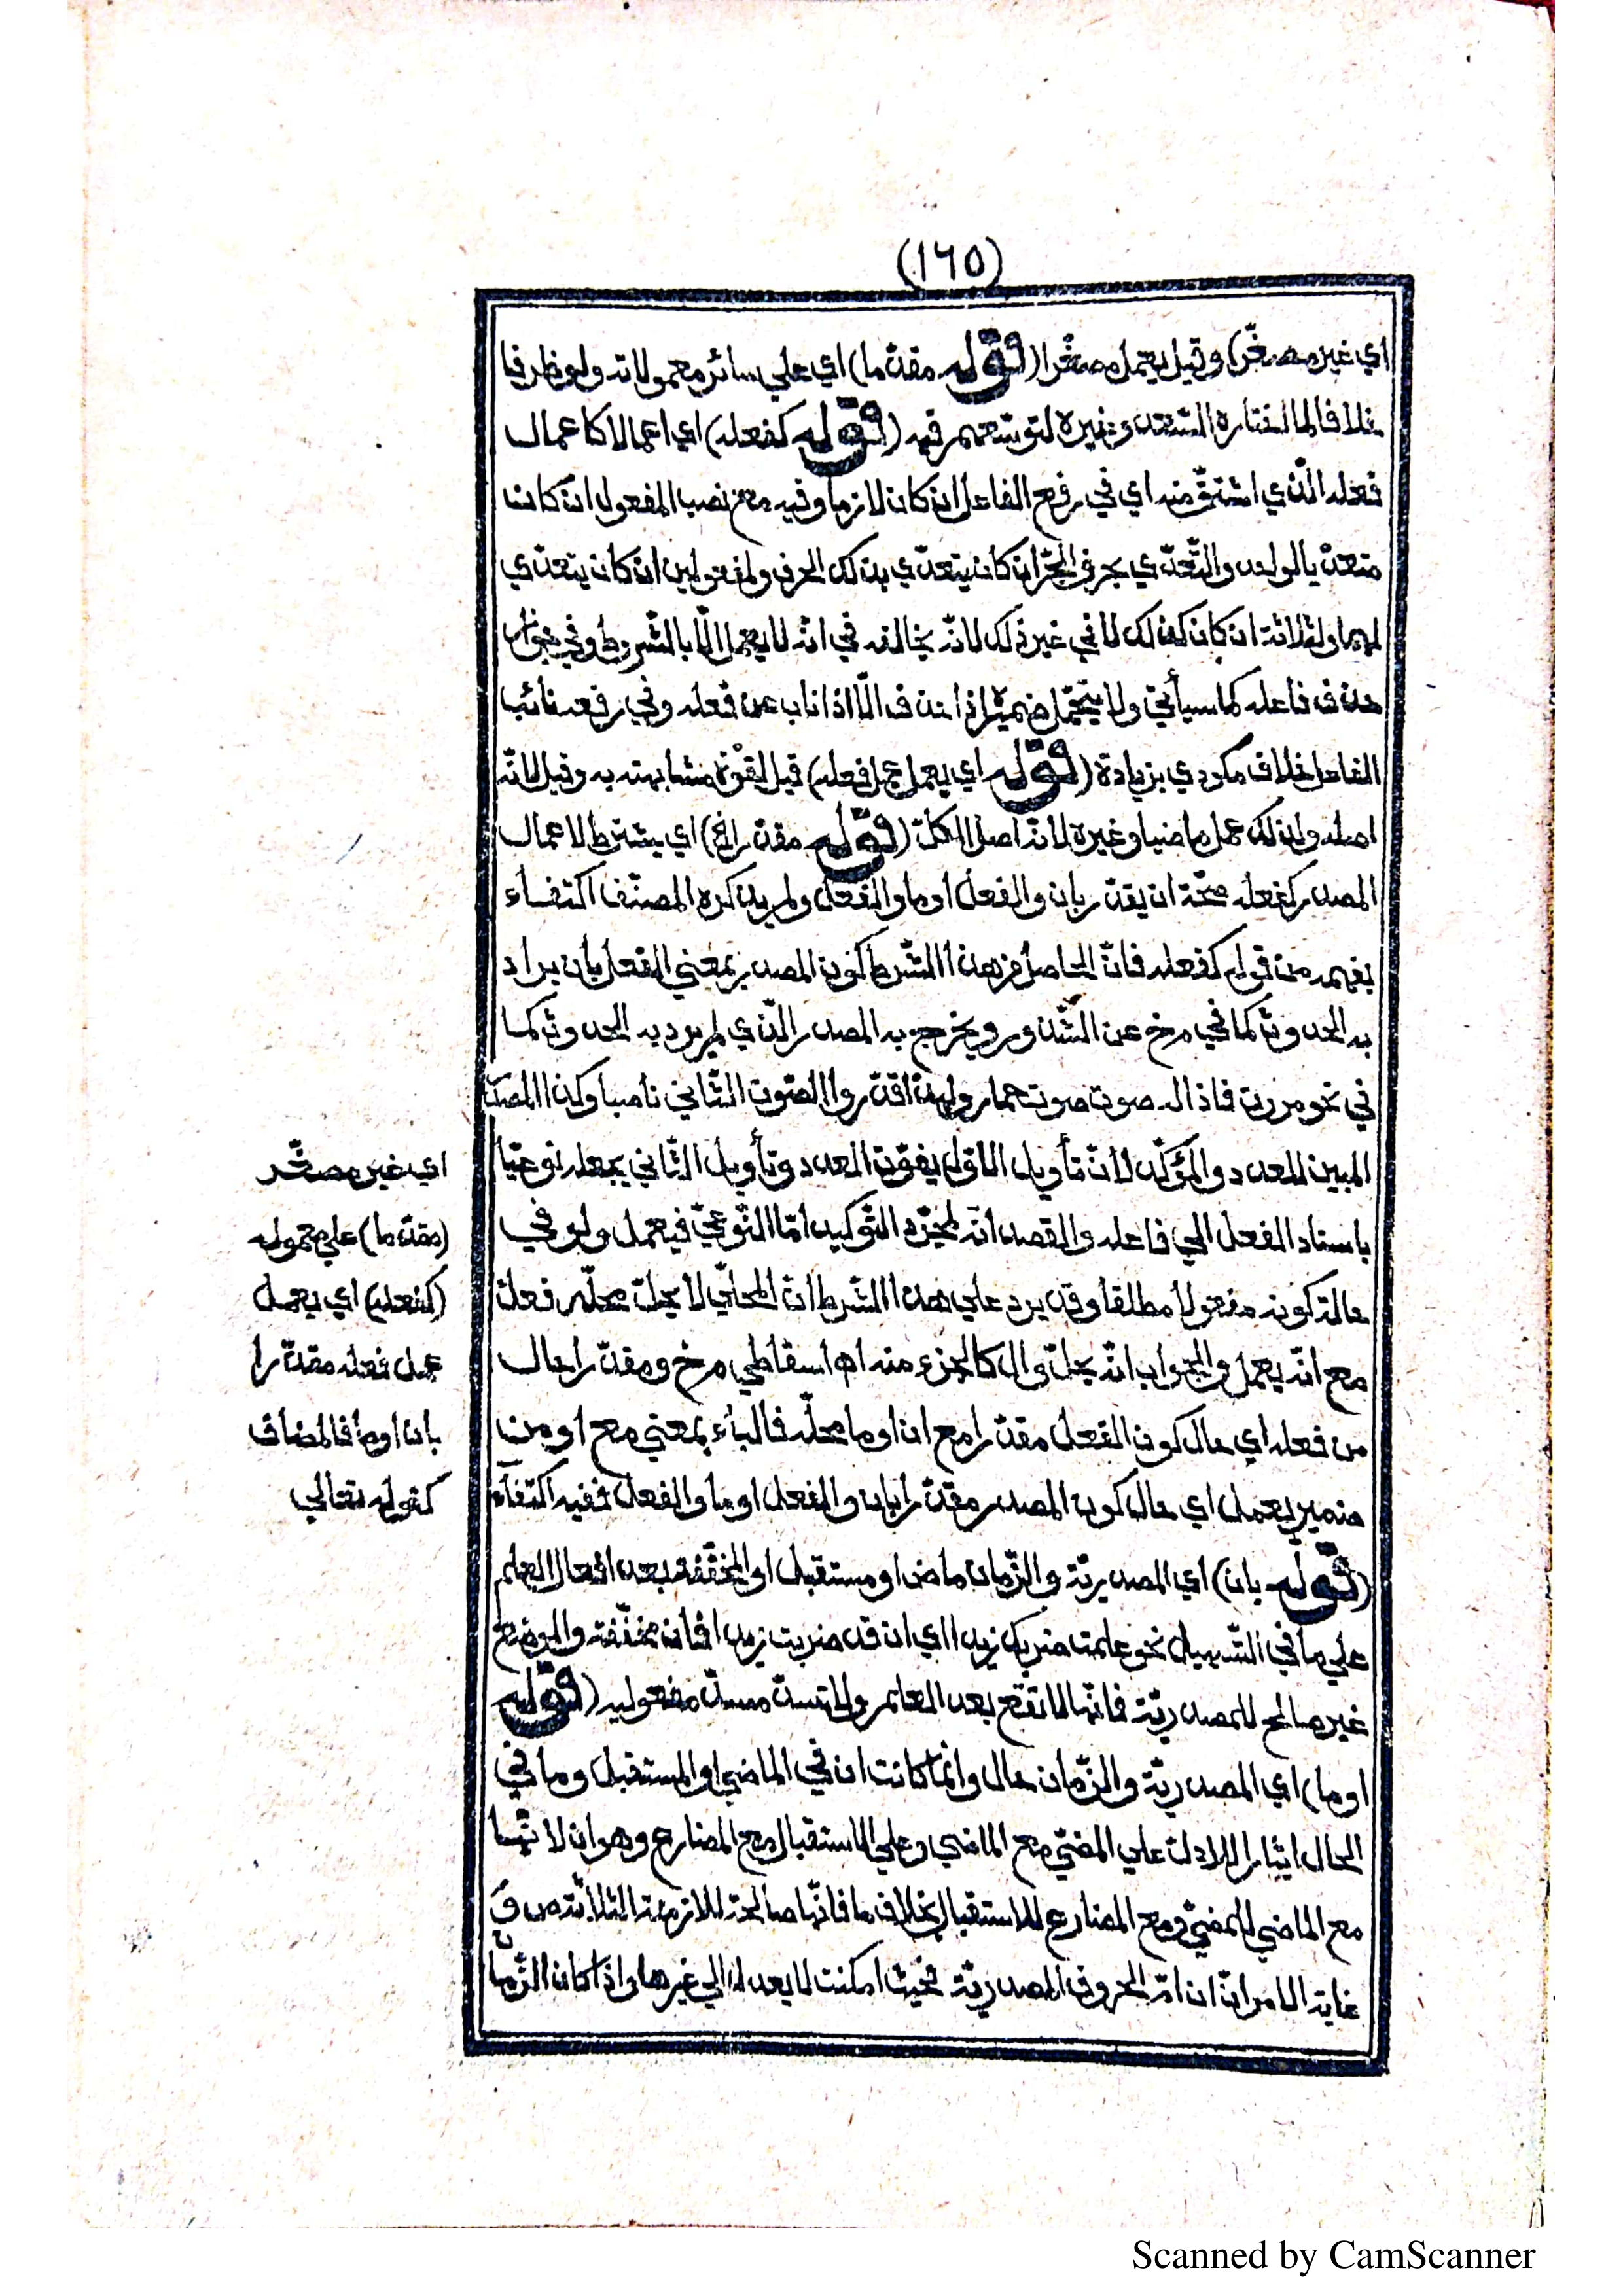 (١٦٥)
اي غير مصغّر) وقيل يعمل مصغّرا (قوله مقدّما) اي علي سائر معمولاته ولو ظرفيا
خلافا لما اختاره السّعد وغيره لتوسّعهم فيه (قوله كفعله) اي اعمالا كاعمال
فعله الّذي اشتقّ منه اي في رفع الفاعل ان كان لازما وفيه مع نصب المفعول ان كان
متعدّيا لواحد والتّعدّي بحرف الجرّ ان كان يتعدّي بذلك الحرف ولمفعولين ان كان يتعدّي
لهما ولثلاثة ان كان كذلك لا في غير ذلك لانّه يخالفه في انّه لا يعمل الّا بالشّروط وفي جواز
حذف فاعله كما سيأتي ولا يتحمّل ضميرا اذا حذف الّا اذا ناب عن فعله وفي رفعه نائب
الفاعل خلاف مكودي بزيادة (قوله اي يعمل عمل فعله) قيل لقوّة مشابهته به وقيل لانّه
اصله ولذلك عمل ماضيا وغيره لانّه اصل الكلّ (قوله مقدّرا الخ) اي يشترط لاعمال
المصدر كفعله صحّة ان يقدّر بان والفعل او ما والفعل ولم يذكره المصنّف اكتفاء
بفهمه من قوله كفعله فانّ الحاصل من هذا الشّرط كون المصدر بمعني الفعل بأن يراد
به الحدوث كما في مرخ عن الشّذور ويخرج به المصدر الّذي لم يرد به الحدوث كما
في نحو مررت فاذا له صوت صوت حمار ولهذا قدّروا للصّوت الثّاني ناصبا وكذا المصدر
المبين للعدد والمؤكّد لانّ تأويل الاوّل يفوّت العدد وتأويل الثّاني يجعله نوعيّا
باسناد الفعل الي فاعله والقصد انّه لمجرّد التّوكيد امّا النّوعيّ فيعمل ولو في
حالة كونه مفعولا مطلقا وقد يرد علي هذا الشّرط انّ المحلّي لا يحلّ محلّه فعل
مع انّه يعمل والجواب انّه يحلّ وال كالجزء منه اه اسقاطي مرخ ومقدّرا حال
من فعله اي حال كون الفعل مقدّرا مع ان او ما محلّه فالباء بمعني مع او من
ضمير يعمل اي حال كون المصدر مقدّرا بان والفعل او ما والفعل ففيه اكتفاء
(قوله بان) اي المصدريّة والزّمان ماض او مستقبل او المخفّفة بعد افعال العلم
علي ما في التّسهيل نحو علمت ضربك زيدا اي ان قد ضربت زيدا فأن مخفّفة والموضع
غير صالح للمصدريّة فانّها لا تقع بعد العلم ولا تسدّ مسدّ مفعوليه (قوله
او ما) اي المصدريّة والزّمان حال وانّما كانت ان في الماضي او المستقبل وما في
الحال ايثارا للادلّ علي المضيّ مع الماضي وعلي الاستقبال مع المضارع وهو ان لانّها
مع الماضي للمضيّ ومع المضارع للاستقبال بخلاف ما فانّها صالحة للازمنة الثلاثة
غاية الامر انّ ان امّ الحروف المصدريّة فحيث امكنت لا يعدل الي غيرها واذا كان الزّما
اي غير مصغّر
(مقدّما) علي معموله
(كفعله) اي يعمل
عمل فعله مقدّرا
بان او ما فالمضاف
كقوله تعالي
Scanned by CamScanner